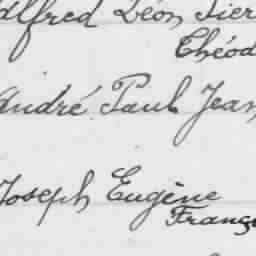 Alfred Léon Pier
Théod
André Paul Jean
Joseph Eugène
Franço